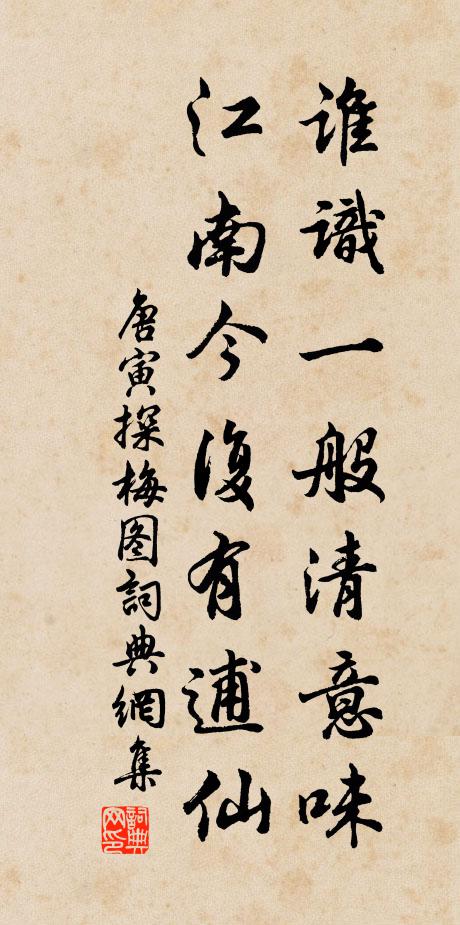 誰識一般清意味
江南今復有逋仙
唐寅探梅图詞典網集
詞典网印